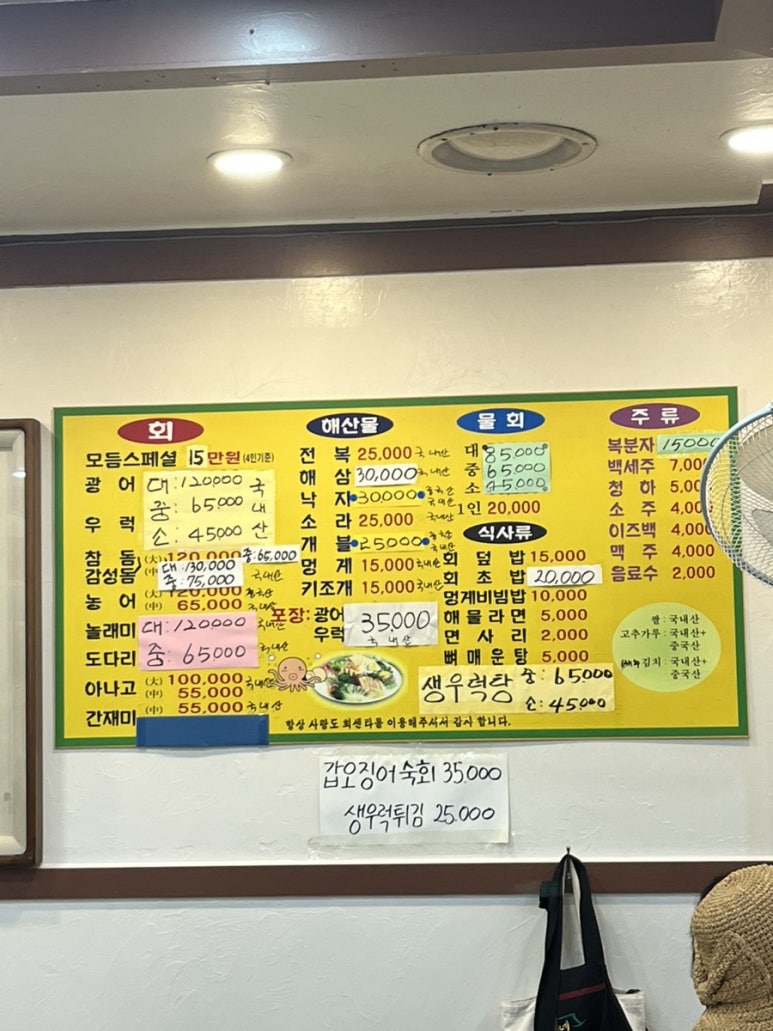 회
모듬스페셜 15만원 (4인기준)
광 어
우 럭
대:120000
중:65000
소:45000
국내산
참 돔 (大) 120,000 중:65,000
감성돔
대:130,000
중:75,000
국내산
농 어 (大) 120,000
(中) 65,000
놀래미
도다리
대:120000
중:65000
국내산
아나고 (大) 100,000 국내산
(中) 55,000
간재미 (中) 55,000 국내산
해산물
전 복 25,000 국내산
해 삼 30,000 국내산
낙 자 30,000 중국산 국내산
소 라 25,000 국내산
개 불 25,000 국내산
멍 게 15,000 국내산
키조개 15,000 국내산
포장: 광어
우럭
35,000
국내산
물 회
대 85,000
중 65,000
소 45,000
1인 20,000
식사류
회 덮 밥 15,000
회 초 밥 20,000
멍게비빔밥 10,000
해 물 라 면 5,000
면 사 리 2,000
뼈 매 운 탕 5,000
생우럭탕 중:65.000
소:45.000
주 류
복분자 15000
백세주 7,00
청 하 5,00
소 주 4,00
이즈백 4,000
맥 주 4,000
음료수 2,000
쌀 : 국내산
고추가루 : 국내산+
중국산
배추김치 : 국내산+
중국산
항상 사랑도 회센타를 이용해주셔서 감사 합니다.
갑오징어숙회 35.000
생우럭튀김 25.000